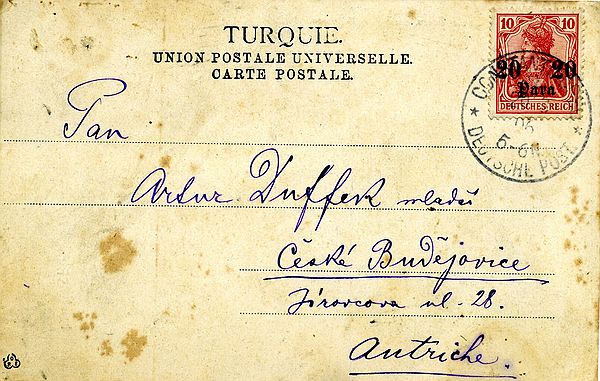 TURQUIE.
UNION POSTALE UNIVERSELLE.
CARTE POSTALE.
10 10
20 20
Para
DEUTSCHES REICH
5-6N
DEUTSCHE POST
Pan
Artur Duffek mladší
České Budějovice
Jírovcova ul. 28.
Autriche.